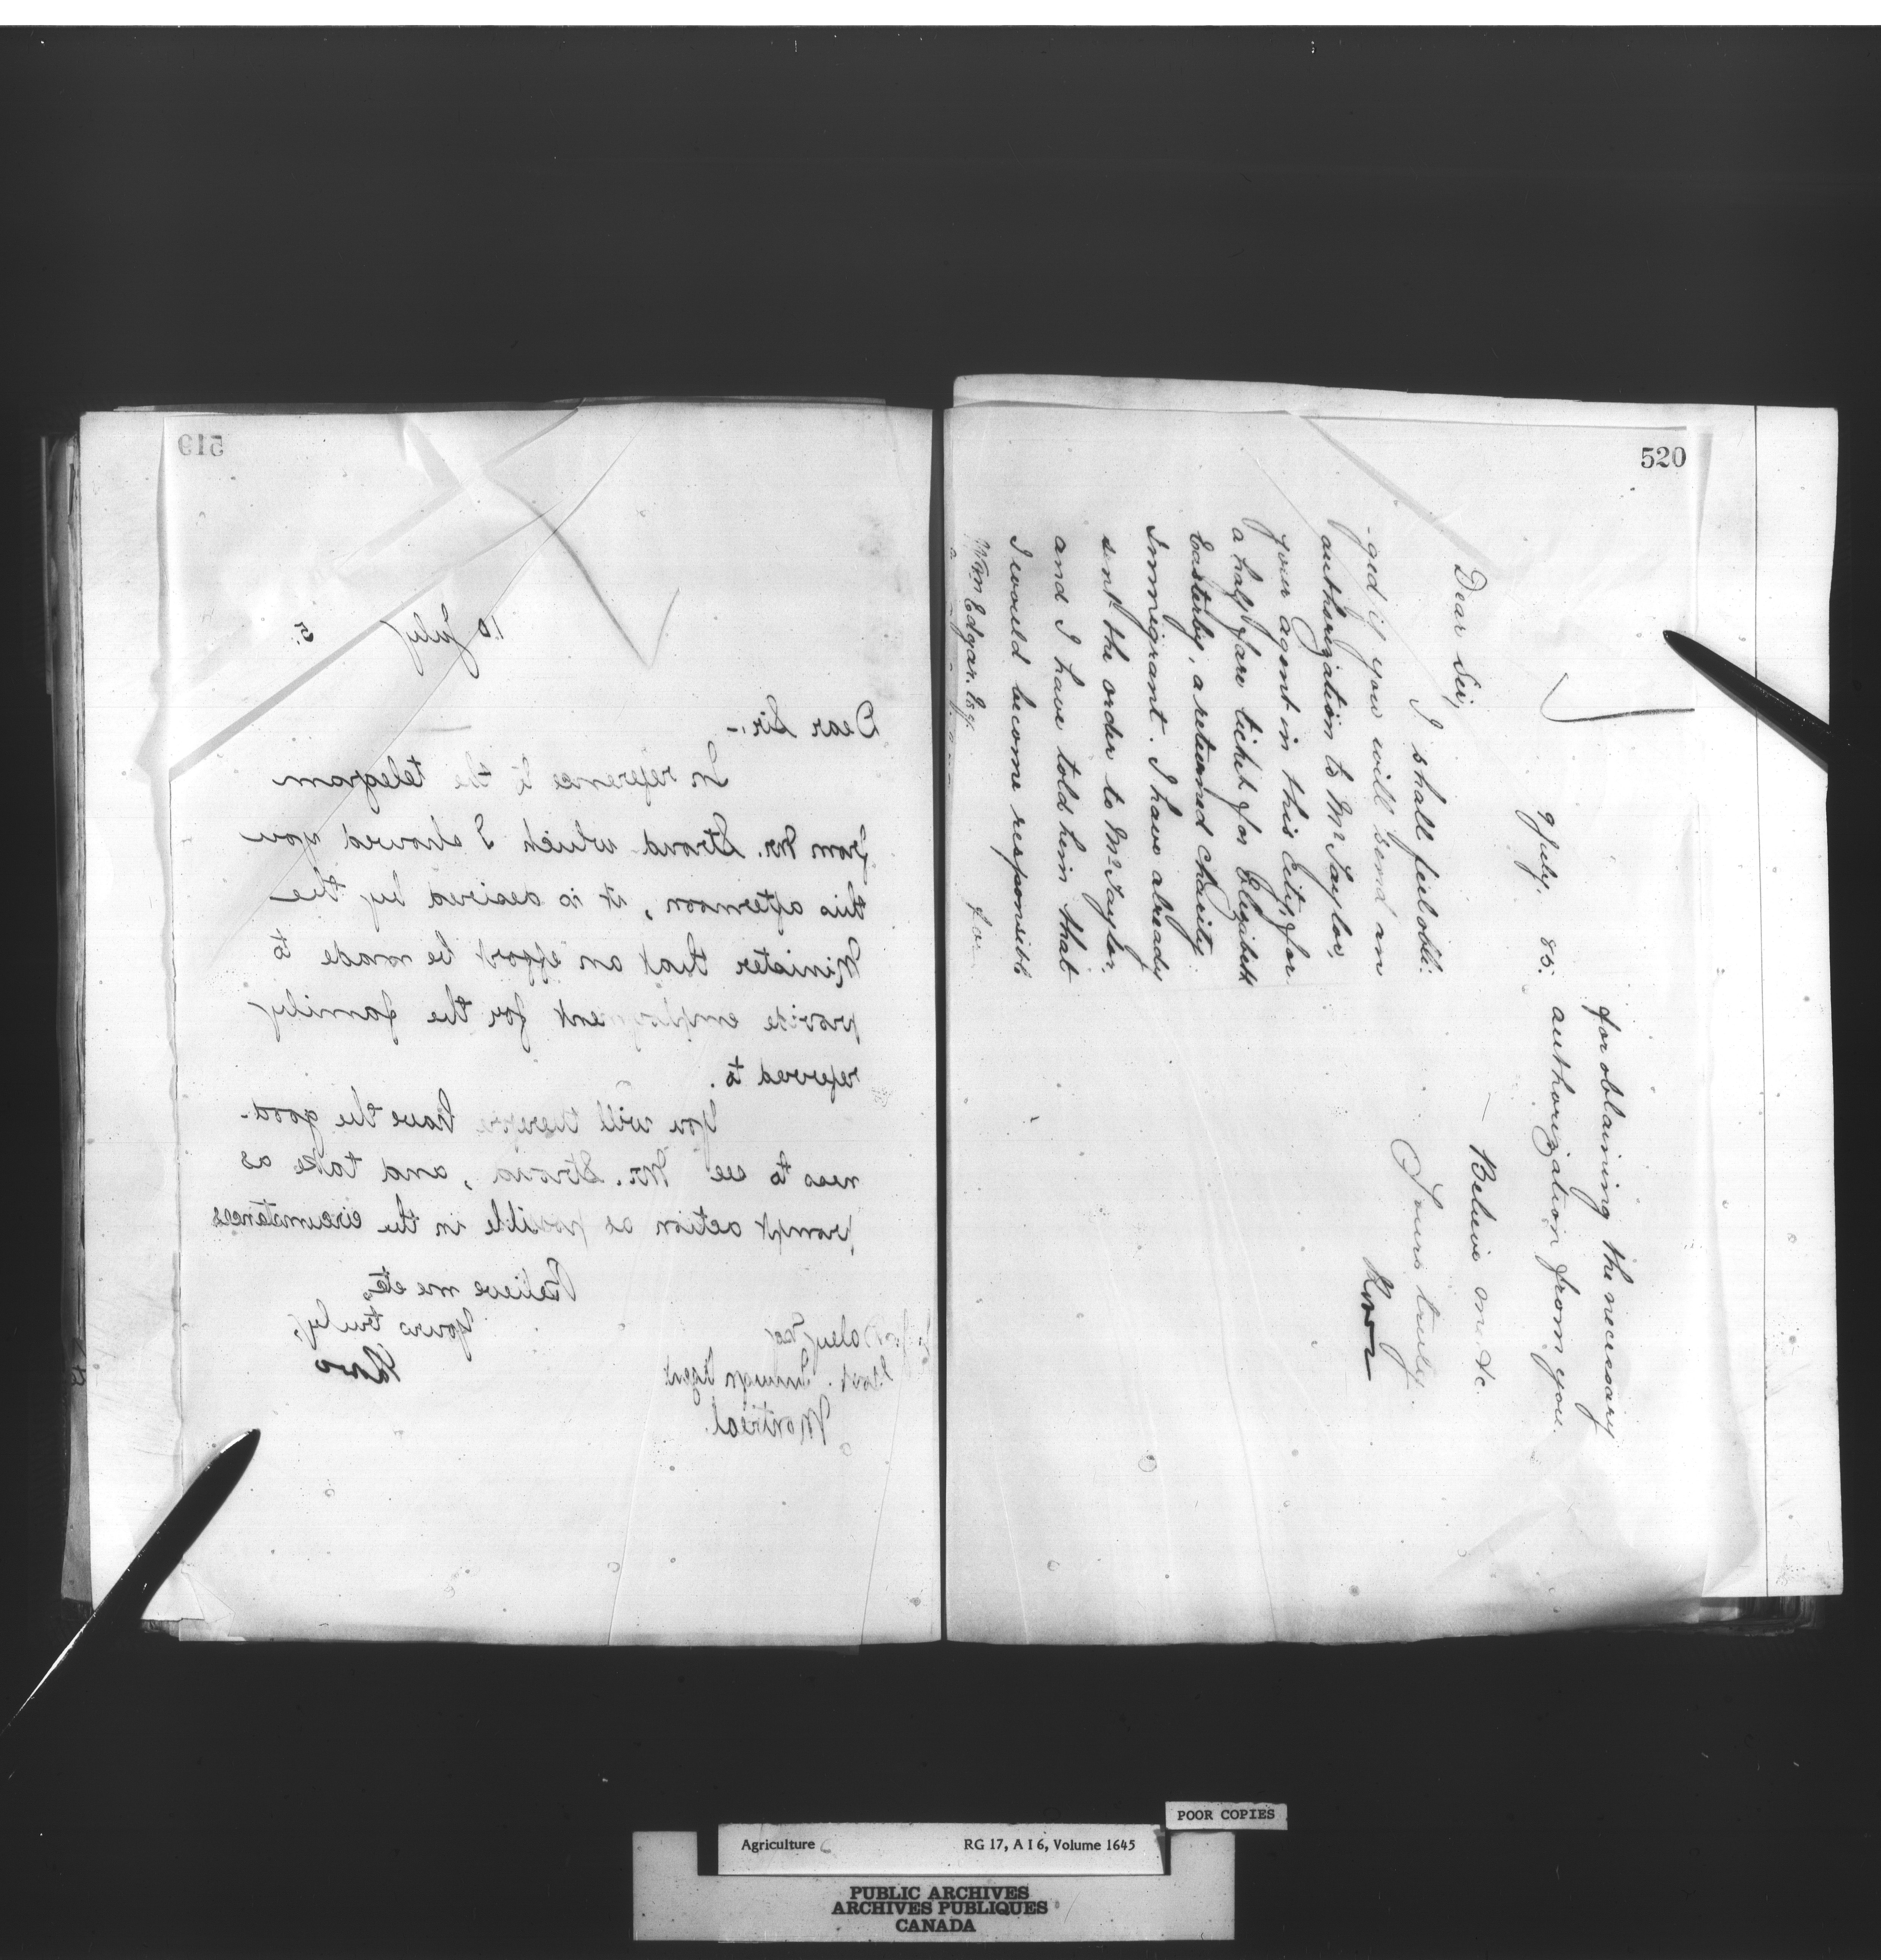 519
10 July 5.
Dear Sir,-
In reference to the telegram
from Mr. Stroud which I showed you
this afternoon, it is desired by the
Minister that an effort be made to
provide employment for the family
referred to.
You will therefore have the good-
ness to see Mr. Stroud, and take as
prompt action as possible in the circumstances
Believe me etc,
Yours truly,
Daley Esq
Immign Agent
Montreal.
520
9 July. 85.
Dear Sir,
I shall feel obli-
-ged if you will send an
authorization to Mr Taylor,
your agent in this City, for
a half fare ticket for Elizabeth
Easterby, a returned charity
Immigrant. I have already
sent the order to Mr Taylor,
and I have told him that
I would become responsible
for
Wm Edgar. Esq.
for obtaining the necessary
authorization from you.
Believe me &c.
Yours truly.
POOR COPIES
Agriculture RG 17, A I 6, Volume 1645
PUBLIC ARCHIVES
ARCHIVES PUBLIQUES
CANADA